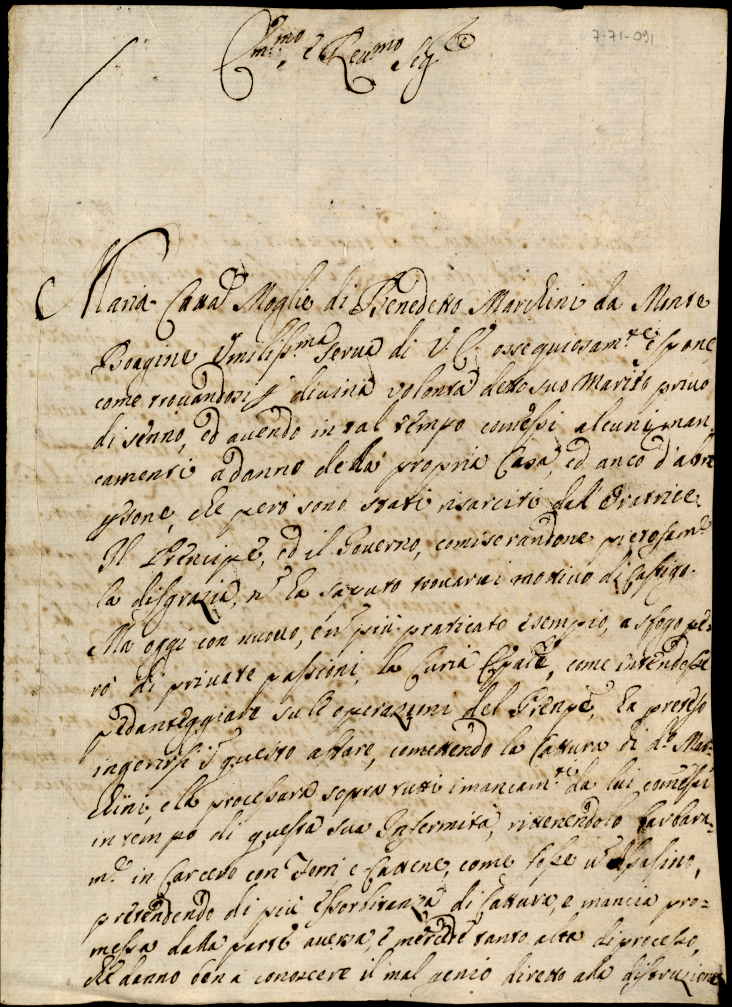 7-71-091
Em.mo e Reu.mo Sig.re
Maria Catta Moglie di Benedetto Marchini da Monte
Boagine Vmiliss.ma Serua di V. E. ossequiosam.te espone
come trouandosi p diuina volontà detto suo Marito priuo
di senno, ed auendo in tal tempo comessi alcuni man-
camenti a danno della propria Casa, ed anco d'altre
psone, che però sono stati risarciti dall'Oratrice.
Il Prencipe, ed il Gouerno, comiserandone pietosam.te
la disgrazia, n hà saputo trouarui mottiuo di Castigo.
Mà oggi con nuouo, e n più praticato esempio, a sfogo pe-
rò di priuate passioni, la Curia, come intendesse
pedanteggiare sù le operazioni del Prenpe, hà preteso
ingerirsi in questo affare, comettendo la Cattura di d.o Mar-
chini, e la processura sopra tutti i mancam.ti da lui comessi
in tempo di questa sua Infermità, rittenendolo barbara-
m.te in Carcere con Ferri e Cattene, come fosse un Assasino,
prettendendo di più essorbitanza di Cattura, e mancia pro=
messa dalla parte auersa, e mercede tanto alta di processo,
che danno ben a conoscere il mal genio diretto alla distruzione